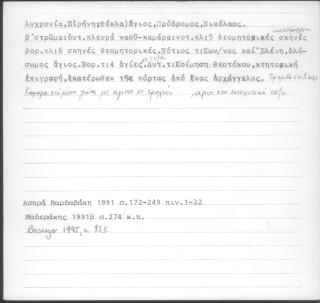 λυχρονία,Εἰρήνη;Θέκλα)ἅγιος,Πρόδρομος,Νικόλαος.
β΄στρῶμα:ἀντ.πλευρά ναοῦ-καμάρα:νοτ.πλ:5 θεομητορικές σκηνές
βορ.πλ:6 σκηνές θεομητορικές,Νότιος τ:Κων/νος καί Ἑλένη,ὁλό-
σωμος ἅγιος.Βορ.τ:4 ἁγίες.Δυτ.τ:Κοίμηση Θεοτόκου,κτητορική
ἐπιγραφή,ἑκατέρωθεν τῆς πόρτας ἀπό ἕνας ἀρχάγγελος.
Ἀσπρά Βαρδαβάκη 1991 σ.172-249 πιν.1-32
Μαδεράκης 1991Β σ.274 κ.π.
1995, σ. 953.